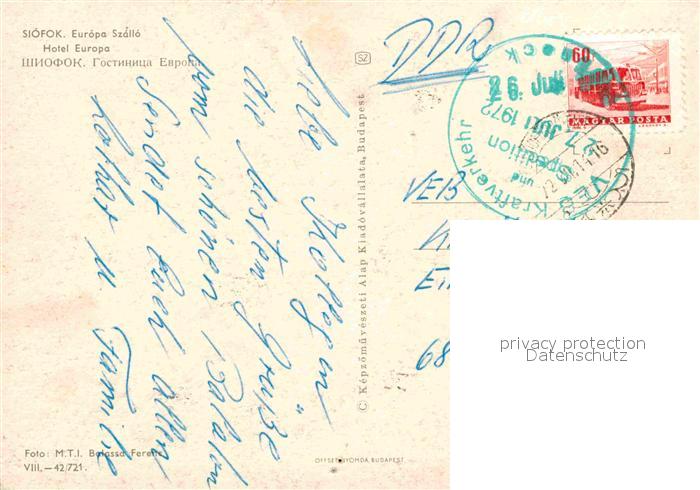 SIÓFOK. Európa Szálló
Hotel Europa
ШИОФОК. Гостиница Европа
Liebe Kollegen
die besten Grüße
vom schönen Balaton
Sendet Euch allen
Lothar u Familie
Foto: M.T.I. Balassa Ferenc
VIII.—42/721.
SZ
C: Képzőművészeti Alap Kiadóvállalata, Budapest
OFFSETNYOMDA, BUDAPEST
DDR
60
MAGYAR POSTA
26. Juli
27. JULI 1972
VEB Kraftverkehr
und
Spedition
VEB
68
privacy protection
Datenschutz